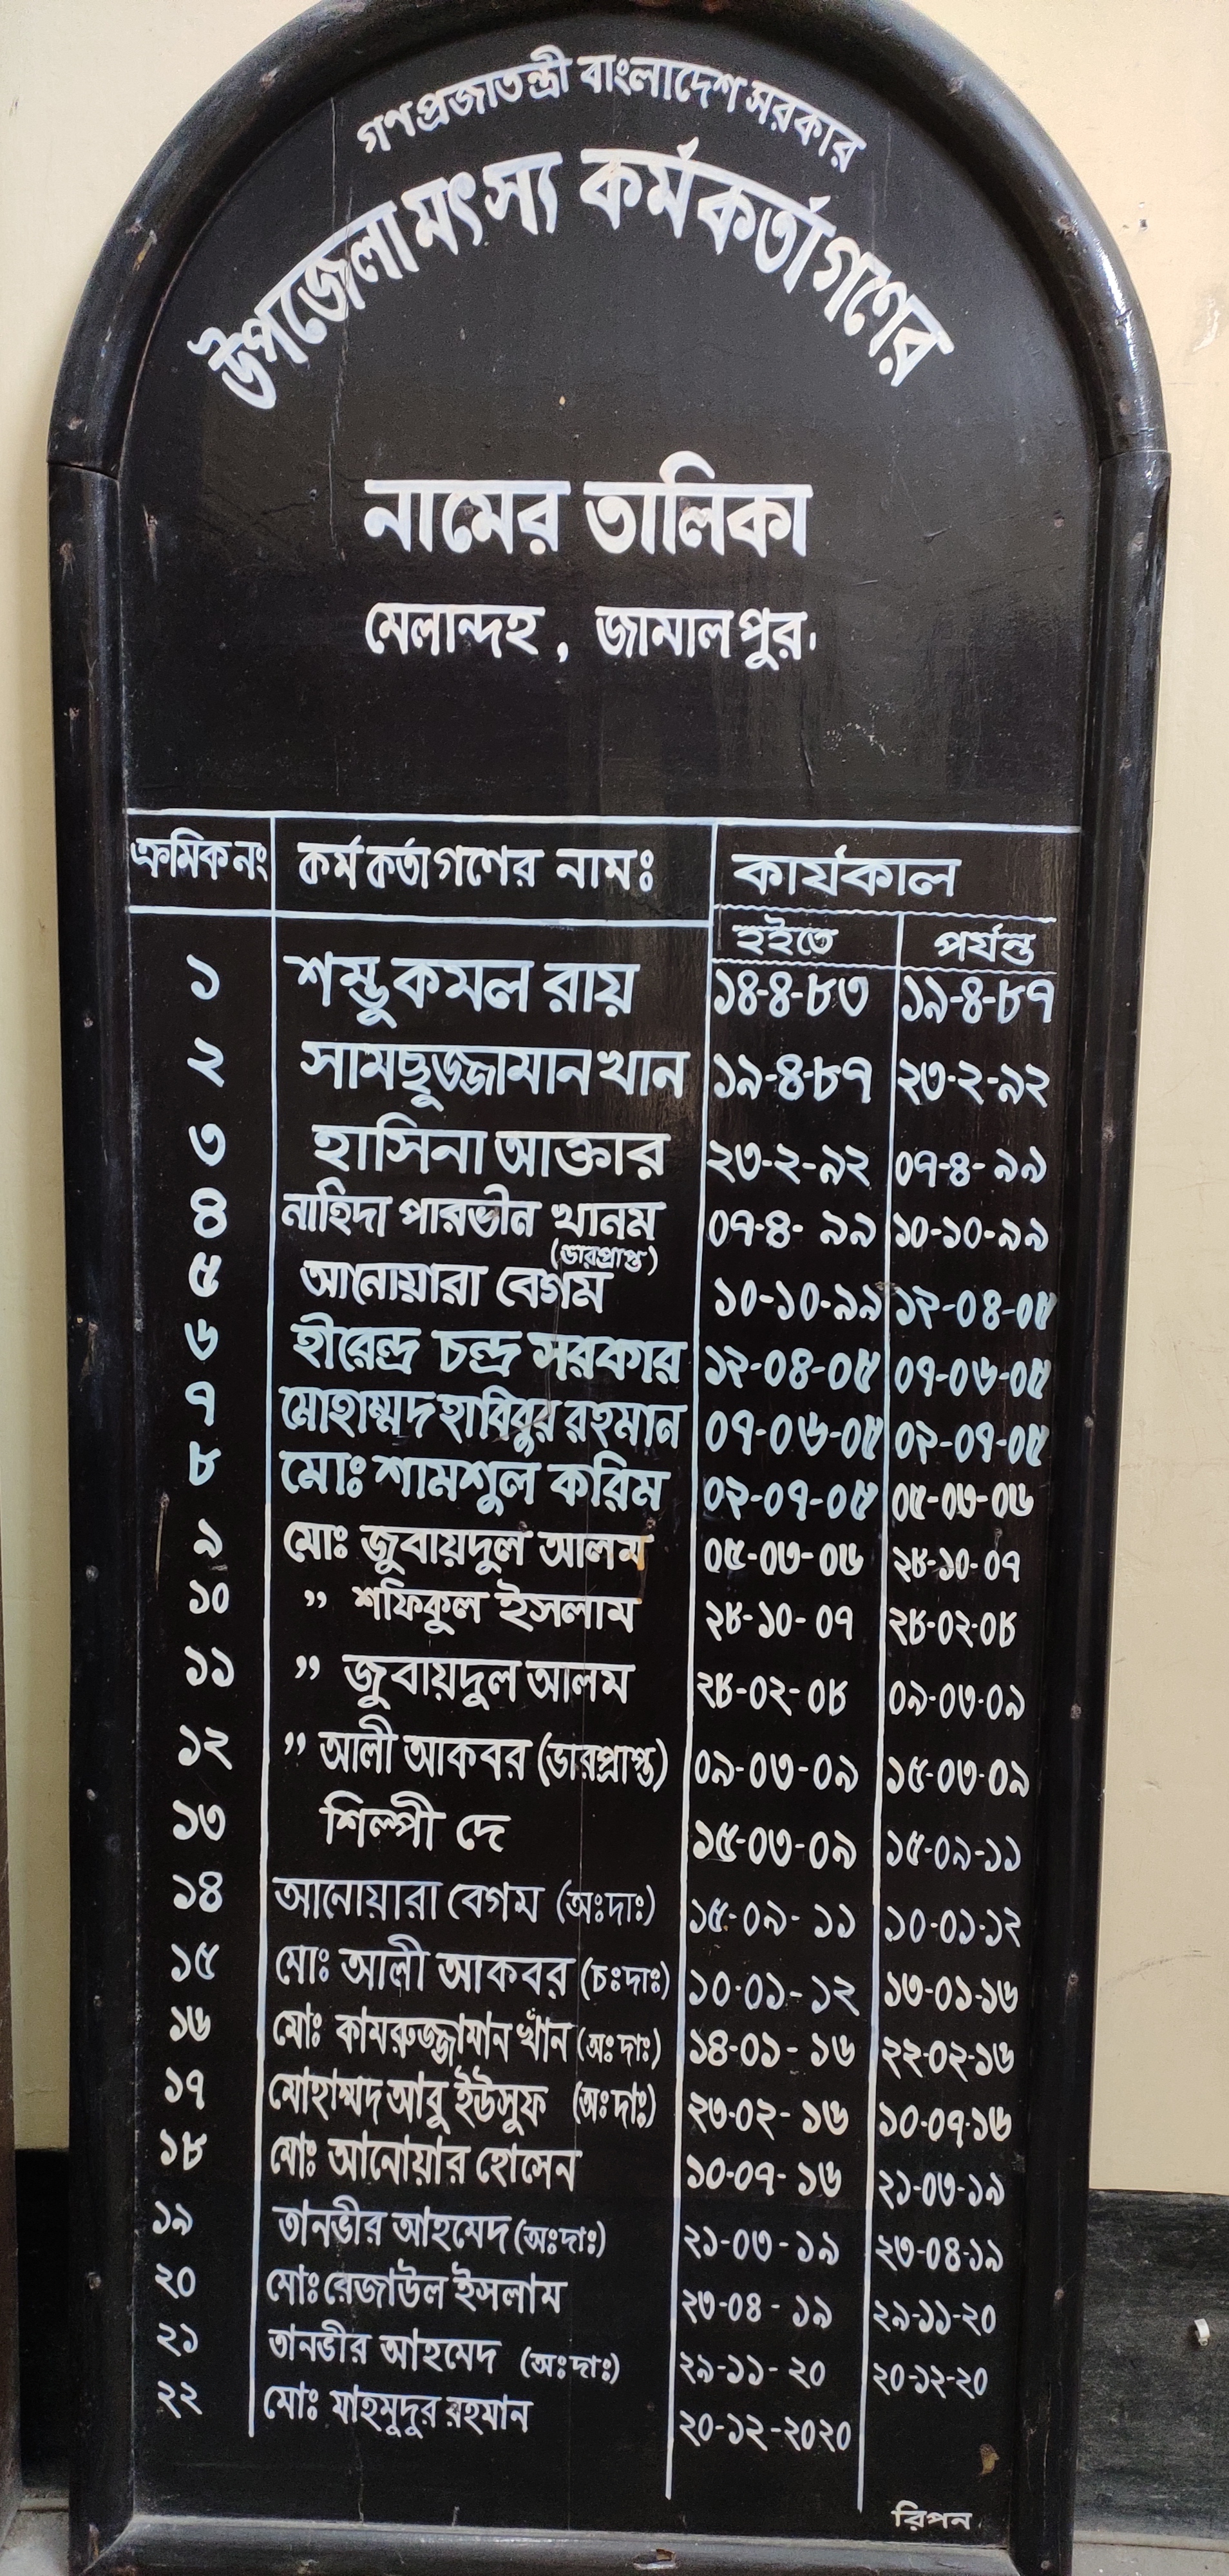 গণপ্রজাতন্ত্রী বাংলাদেশ সরকার
উপজেলা মৎস্য কর্মকর্তাগণের
নামের তালিকা
মেলান্দহ, জামালপুর।
ক্রমিক নং কর্মকর্তাগণের নামঃ কার্যকাল
হইতে পর্যন্ত
১ শম্ভু কমল রায় ১৪-৪-৮৩ ১৯-৪-৮৭
২ সামছুজ্জামান খান ১৯-৪-৮৭ ২৩-২-৯২
৩ হাসিনা আক্তার ২৩-২-৯২ ০৭-৪-৯৯
৪ নাহিদা পারভীন খানম ০৭-৪-৯৯ ১০-১০-৯৯
(ভারপ্রাপ্ত)
৫ আনোয়ারা বেগম ১০-১০-৯৯ ১২-০৪-০৫
৬ হীরেন্দ্র চন্দ্র সরকার ১২-০৪-০৫ ০৭-০৬-০৫
৭ মোহাম্মদ হাবিবুর রহমান ০৭-০৬-০৫ ০২-০৭-০৫
৮ মোঃ শামশুল করিম ০২-০৭-০৫ ০৫-০৩-০৬
৯ মোঃ জুবায়দুল আলম ০৫-০৩-০৬ ২৮-১০-০৭
১০ ” শফিকুল ইসলাম ২৮-১০-০৭ ২৮-০২-০৮
১১ ” জুবায়দুল আলম ২৮-০২-০৮ ০৯-০৩-০৯
১২ ” আলী আকবর (ভারপ্রাপ্ত) ০৯-০৩-০৯ ১৫-০৩-০৯
১৩ শিল্পী দে ১৫-০৩-০৯ ১৫-০৯-১১
১৪ আনোয়ারা বেগম (অঃদাঃ) ১৫-০৯-১১ ১০-০১-১২
১৫ মোঃ আলী আকবর (চঃদাঃ) ১০-০১-১২ ১৩-০১-১৬
১৬ মোঃ কামরুজ্জামান খাঁন (অঃদাঃ) ১৪-০১-১৬ ২২-০২-১৬
১৭ মোহাম্মদ আবু ইউসুফ (অঃদাঃ) ২৩-০২-১৬ ১০-০৭-১৬
১৮ মোঃ আনোয়ার হোসেন ১০-০৭-১৬ ২১-০৩-১৯
১৯ তানভীর আহমেদ (অঃদাঃ) ২১-০৩-১৯ ২৩-০৪-১৯
২০ মোঃ রেজাউল ইসলাম ২৩-০৪-১৯ ২৯-১১-২০
২১ তানভীর আহমেদ (অঃদাঃ) ২৯-১১-২০ ২০-১২-২০
২২ মোঃ মাহমুদুর রহমান ২০-১২-২০২০
রিপন